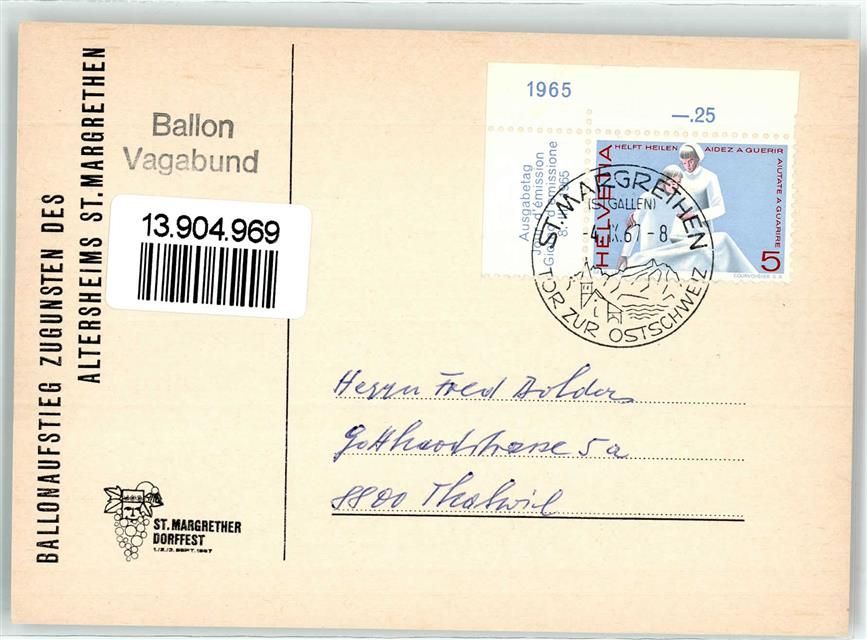 BALLONAUFSTIEG ZUGUNSTEN DES
ALTERSHEIMS ST. MARGRETHEN
Ballon
Vagabund
13.904.969
ST. MARGRETHER
DORFFEST
1./2./3. SEPT. 1967
1965
—.25
Ausgabetag
Jour d'émission
Giorno d'emissione
8. 1965
HELVETIA
HELFT HEILEN AIDEZ A GUERIR
AIUTATE A GUARIRE
5
COURVOISIER S.A.
ST. MARGRETHEN
(ST. GALLEN)
-4.IX.67-8
TOR ZUR OSTSCHWEIZ
Herrn Fred Dolder
Gotthardstrasse 5a
8800 Thalwil